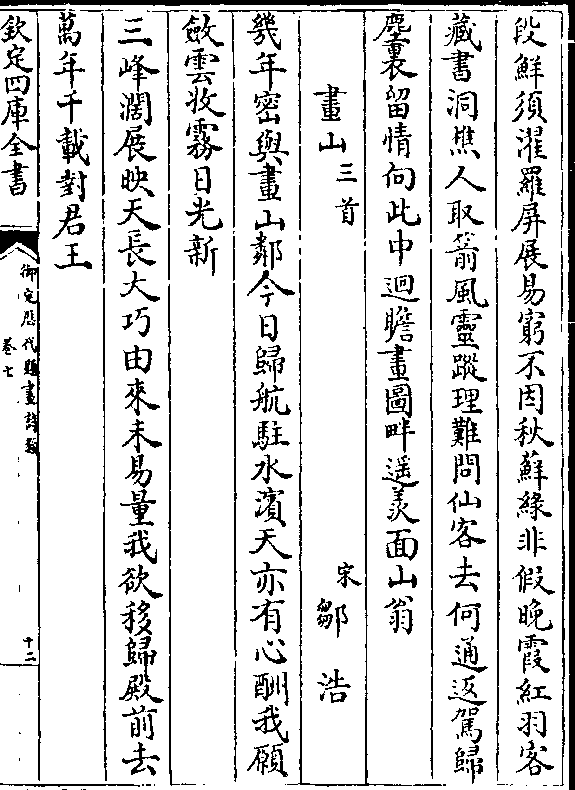 段鮮須濯羅屏展易窮不因秋蘚緣非假晚霞紅羽客
藏書洞樵人取箭風靈蹤理難問仙客去何通返駕歸
塵裏留情向此中迴瞻畫圖畔遥羨面山翁
畫山三首 宋鄒浩
幾年密與畫山鄰今日歸航駐水濱天亦有心酬我願
斂雲收霧日光新
三峰濶展映天長大巧由來未易量我欲移歸殿前去
萬年千載對君王
欽定四庫全書
御定歷代題畫詩類
卷七
十二